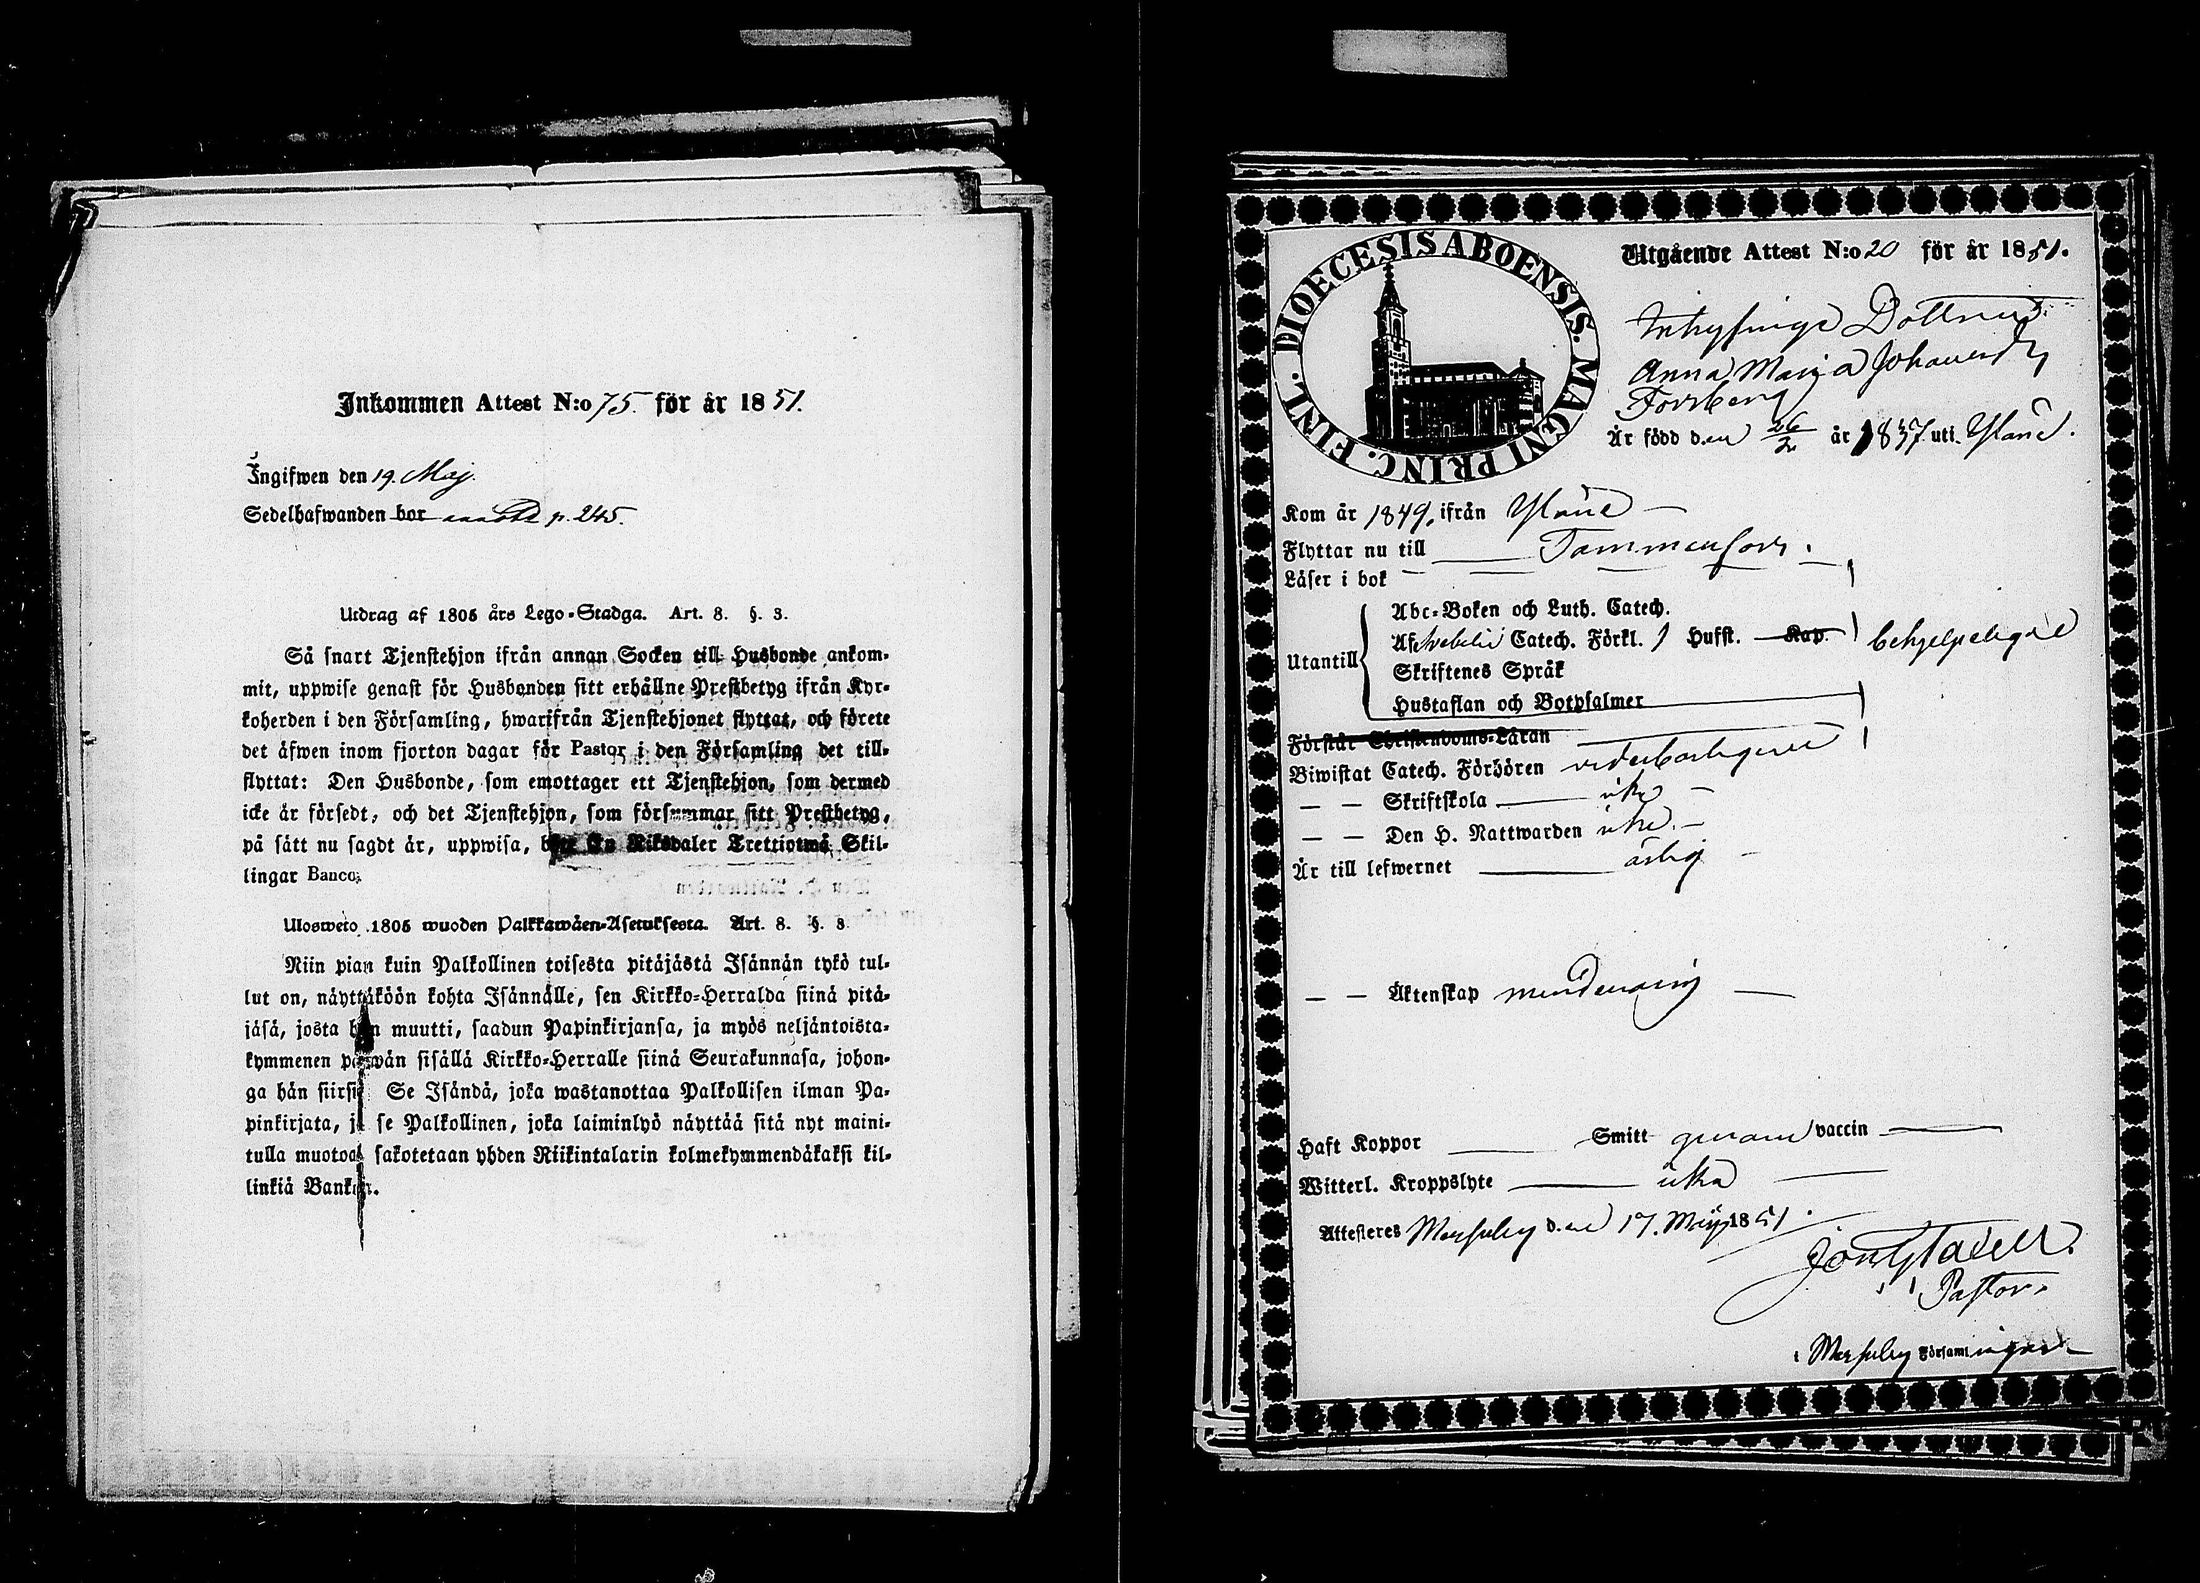 Inkommen Attest N:o 75. för år 1851.
Ingifwen den 19. Maj.
Sedelhafwanden bor p. 245.
Utdrag af 1805 års Lego-Stadga. Art. 8. §. 3.
Så snart Tjenstehjon ifrån annan Socken till Husbonde ankom-
mit, uppwise genast för Husbonden sitt erhållne Prestbetyg ifrån Kyr-
koherden i den Församling, hwarifrån Tjenstehjonet flyttat, och förete
det äfwen inom fjorton dagar för Pastor i den Församling det till-
flyttat: Den Husbonde, som emottager ett Tjenstehjon, som dermed
icke är försedt, och det Tjenstehjon, som försummar sitt Prestbetyg,
på sätt nu sagdt är, uppwisa, böte En Riksdaler Trettiotwå Skil-
lingar Banco.
Ulosweto 1805 wuoden Palkkawäen-Asetuksesta. Art. 8. §. 3.
Niin pian kuin Palkollinen toisesta pitäjästä Isännän tykö tul-
lut on, näyttäköön kohta Isännälle, sen Kirkko-Herralda siinä pitä-
jäsä, josta hän muutti, saadun Papinkirjansa, ja myös neljäntoista-
kymmenen päiwän sisällä Kirkko-Herralle siinä Seurakunnasa, johon-
ga hän siirsi: Se Isändä, joka wastanottaa Palkollisen ilman Pa-
pinkirjata, ja se Palkollinen, joka laiminlyö näyttää sitä nyt maini-
tulla muotoa, sakotetaan yhden Riikintalarin kolmekymmendäkaksi kil-
linkiä Bankos.
DIOECESIS ABOENSIS. MAGNI PRINC. FINL.
Utgående Attest N:o 20 för år 1851.
Inhysinge Dottren
Anna Maria Johansdr
Forsberg
Är född den 26/2 år 1837. uti Yläne.
Kom år 1849. ifrån Yläne
Flyttar nu till Tammerfors.
Läser i bok
Utantill
Abc-Boken och Luth. Catech.
Af Svebelii Catech. Förkl. 1 Hufst. Kap. behjelpeligare
Skriftenes Språk
Hustaflan och Botpsalmer
Förstår Christendoms-Läran
Biwistat Catech. Förhören vederbörligen
— — Skriftskola icke
— — Den H. Nattwarden icke
Är till lefwernet ärlig
— — Äktenskap minderårig
Haft Koppor Smitt genom vaccin
Witterl. Kroppslyte icke
Attesteres Merfuby den 17. Maij 1851.
Pastor.
i Merfuby Församlingar